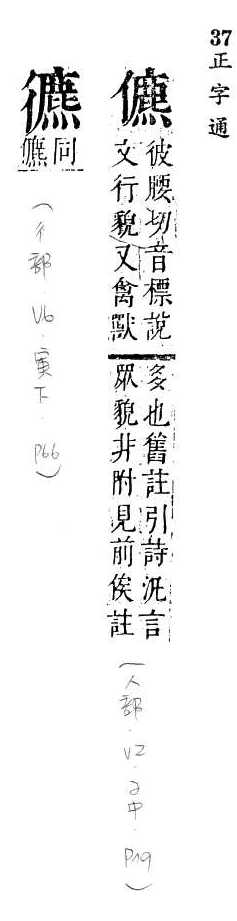 37正字通
儦
彼腰切音標說
文行貌又禽獸
多也舊註引詩汎言
眾貌非附見前俟註
(人部.V2.子中.P19)
同
儦
(彳部.V6.寅下.P66)